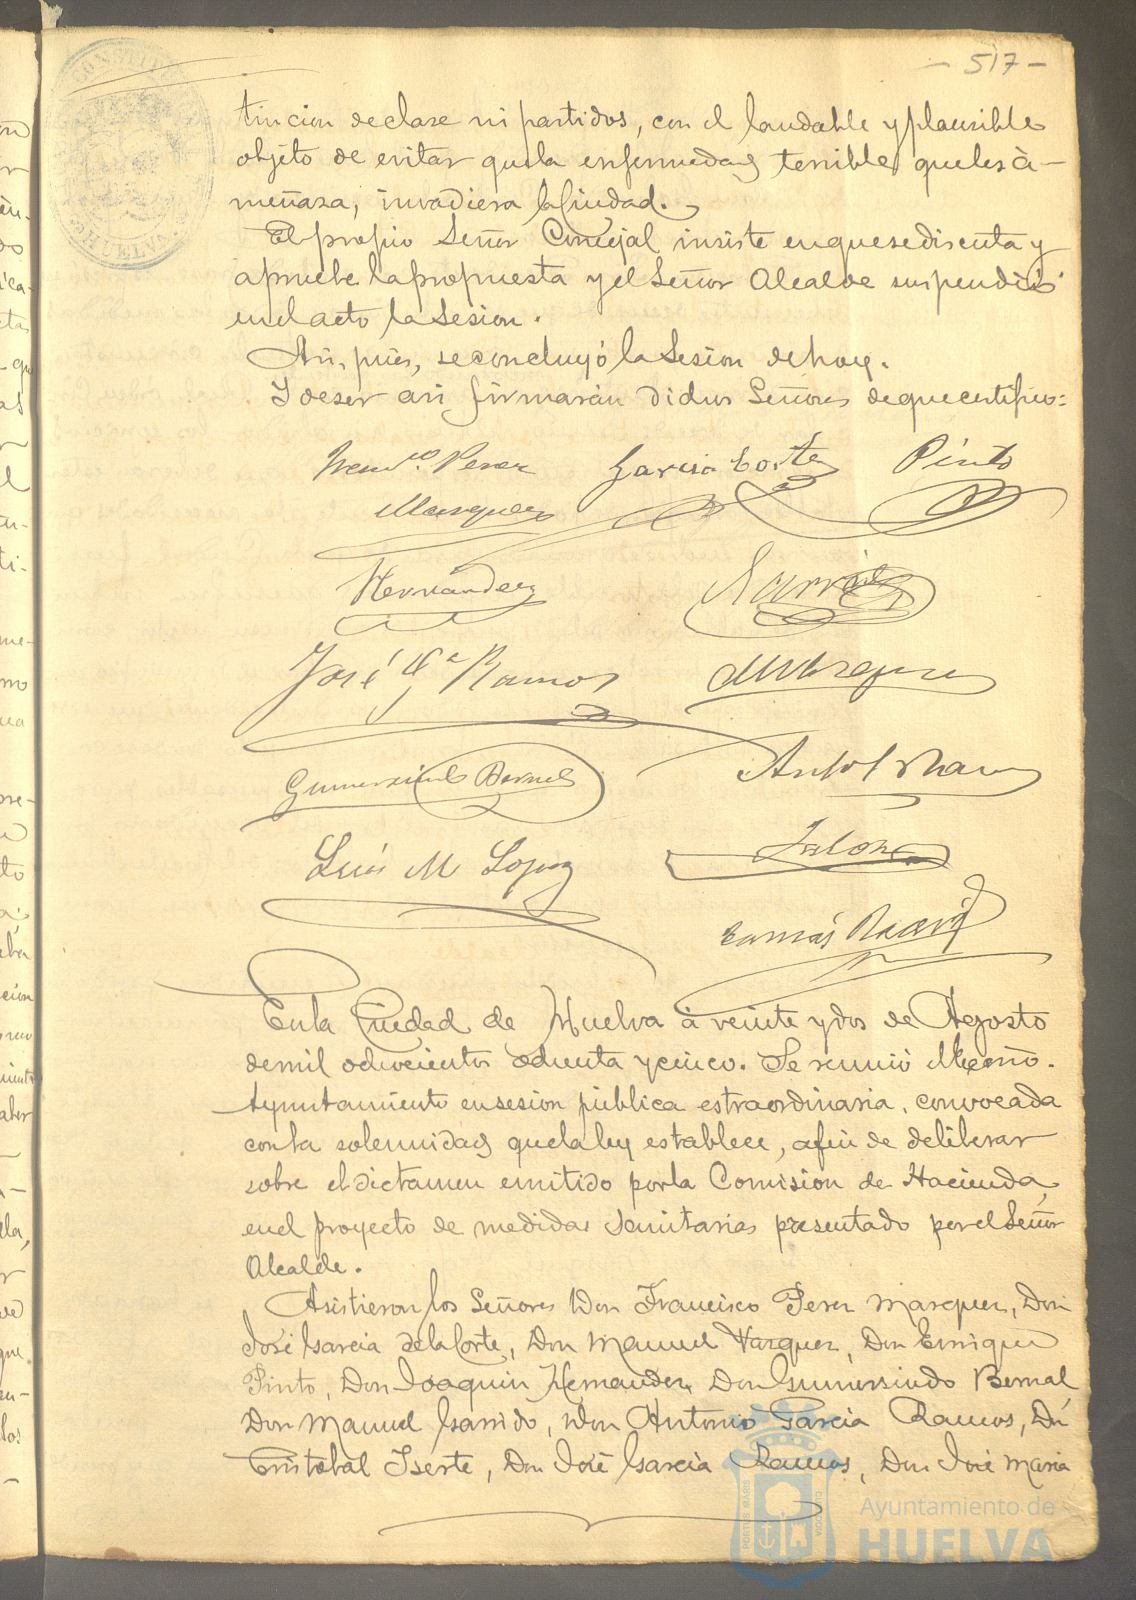 - 517 -
tincion de clase ni partidos, con el laudable y plausible
objeto de evitar que la enfermedad terrible que les a-
menaza, invadiera la Ciudad.
El propio Señor Concejal insiste en que se discuta y
apruebe la propuesta y el Señor Alcalde suspendió
en el acto la Sesion.
Así, pues, se concluyó la Sesion de hoy.
Y de ser así firmarán dichos Señores de que certifico:
Franco. Perez Garcia Corte Pinto
Marquez
Hernandez Garrido
José Ga Ramos M Vazquez
Gumersindo Bernal
Luis M Lopez
Tomás
En la Ciudad de Huelva á veinte y dos de Agosto
de mil ochocientos ochenta y cinco. Se reunió el Excmo.
Ayuntamiento en sesion pública estraordinaria, convocada
con la solemnidad que la ley establece, á fin de deliberar
sobre el dictamen emitido por la Comision de Hacienda,
en el proyecto de medidas sanitarias presentado por el Señor
Alcalde.
Asistieron los Señores Don Francisco Perez Marquez, Don
José Garcia de la Corte, Don Manuel Vazquez, Don Enrique
Pinto, Don Joaquin Hernandez, Don Gumersindo Bernal,
Don Manuel Garrido, Don Antonio Garcia Ramos, Dn
Cristobal Iserte, Don José Garcia Ramos, Don José Maria
CONSTITUCIONAL
HUELVA
PORTUS MARIS
Ayuntamiento de
HUELVA